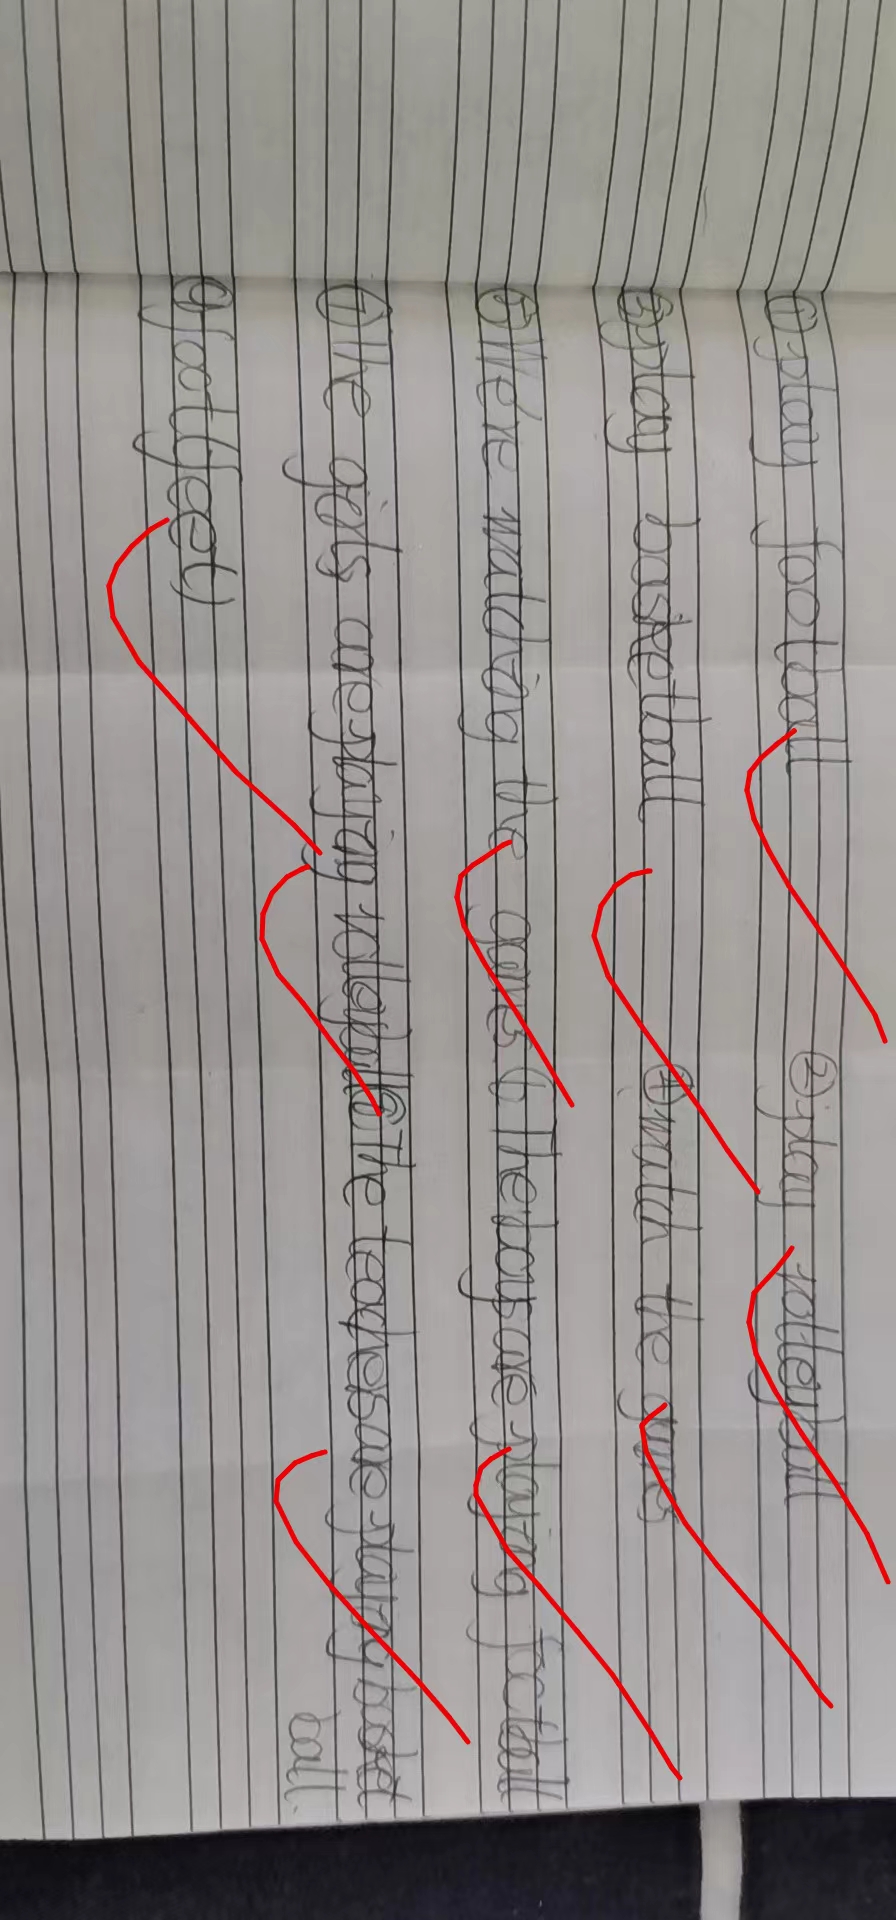 ①play football ②play volleyball
③play basketball ④watch the games
⑤We're watching the games ⑥The boys are playing football
⑦The girls are playing volleyball ⑧The teachers are playing basket
ball.
⑨foot(feet)